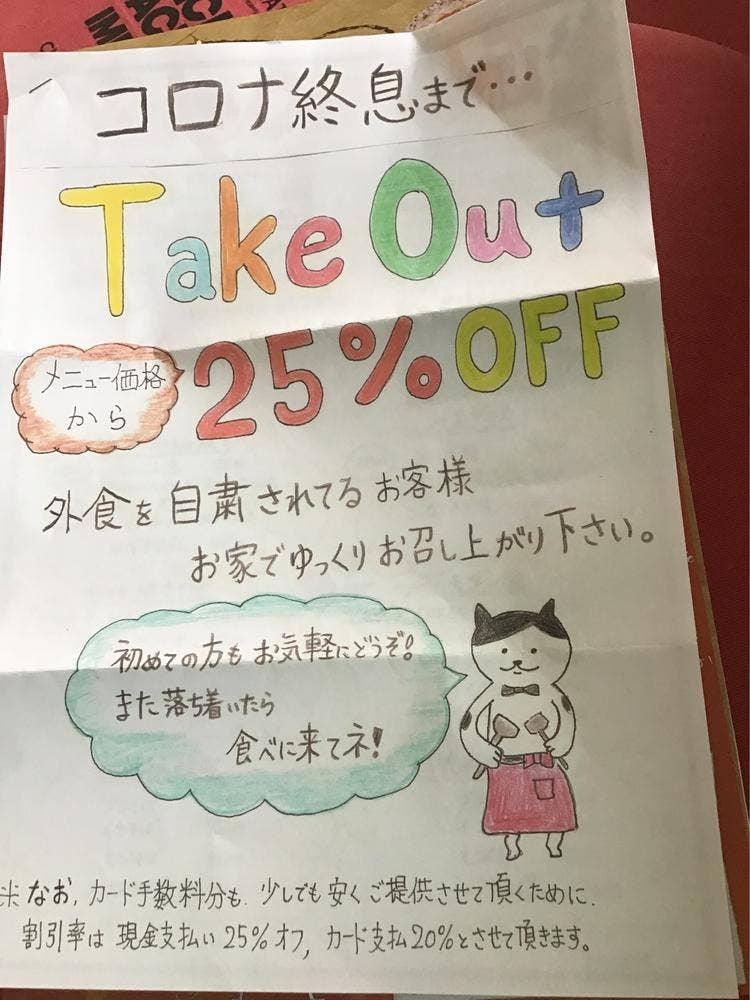 コロナ終息まで…
Take Out
メニュー価格
から
25%OFF
外食を自粛されてるお客様
お家でゆっくりお召し上がり下さい。
初めての方もお気軽にどうぞ!
また落ち着いたら
食べに来てネ!
※なお、カード手数料分も、少しでも安くご提供させて頂くために、
割引率は現金支払い25%オフ、カード支払20%とさせて頂きます。